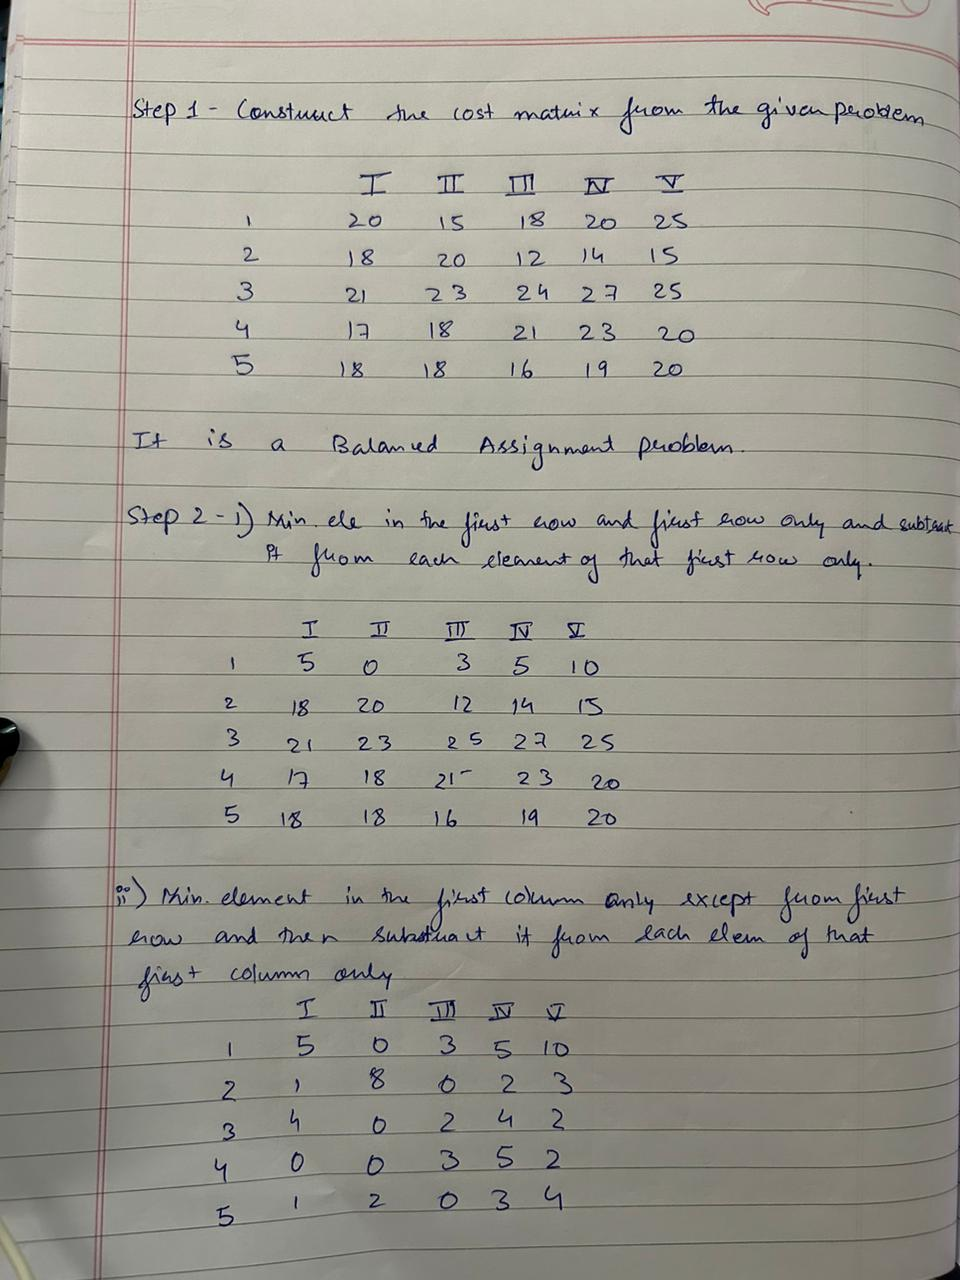 Step 1 - Construct the cost matrix from the given problem
I II III IV V
1 20 15 18 20 25
2 18 20 12 14 15
3 21 23 24 27 25
4 17 18 21 23 20
5 18 18 16 19 20
It is a Balanced Assignment problem.
Step 2 - i) Min. ele in the first row and first row only and subtract
it from each element of that first row only.
I II III IV V
1 5 0 3 5 10
2 18 20 12 14 15
3 21 23 25 27 25
4 17 18 21 23 20
5 18 18 16 19 20
ii) Min. element in the first column only except from first
row and then substract it from each elem of that
first column only
I II III IV V
1 5 0 3 5 10
2 1 8 0 2 3
3 4 0 2 4 2
4 0 0 3 5 2
5 1 2 0 3 4